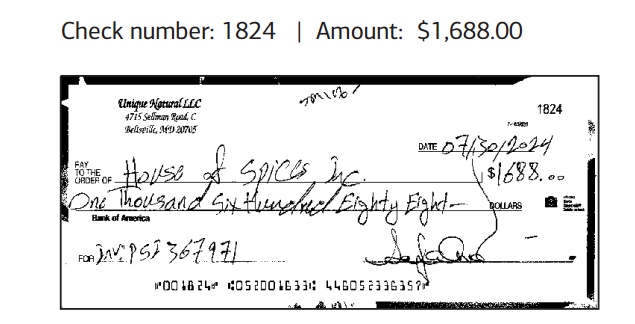 Check number: 1824 | Amount: $1,688.00
Unique Natural LLC
1824
4715 Sellman Road, C
Beltsville, MD 20705
DATE 07/30/2024
PAY TO THE ORDER OF House of Spices Inc. $1688.00
One Thousand Six Hundred Eighty Eight- DOLLARS
Bank of America
FOR INV: PSI 367971
⑈001824⑈ ⑆052001633⑆ 446052336357⑈